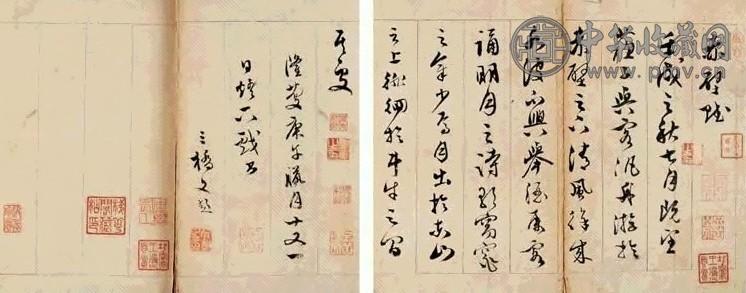 赤壁賦
壬戌之秋七月既望
蘇子與客泛舟游於
赤壁之下清風徐來
水波不興舉酒屬客
誦明月之詩歌窈窕
之章少焉月出於東山
之上徘徊於斗牛之間
隆慶庚午臘月十又一
日燈下戲書
三橋文彭
中华收藏网